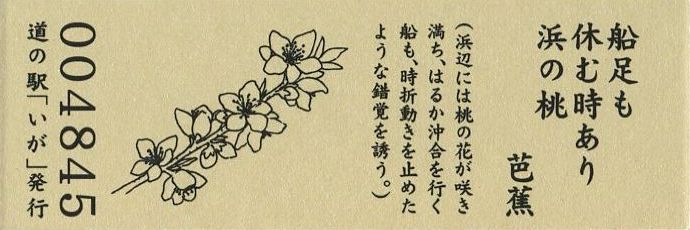 船足も
休む時あり
浜の桃
芭蕉
(浜辺には桃の花が咲き
満ち、はるか沖合を行く
船も、時折動きを止めた
ような錯覚を誘う。)
004845
道の駅「いが」発行